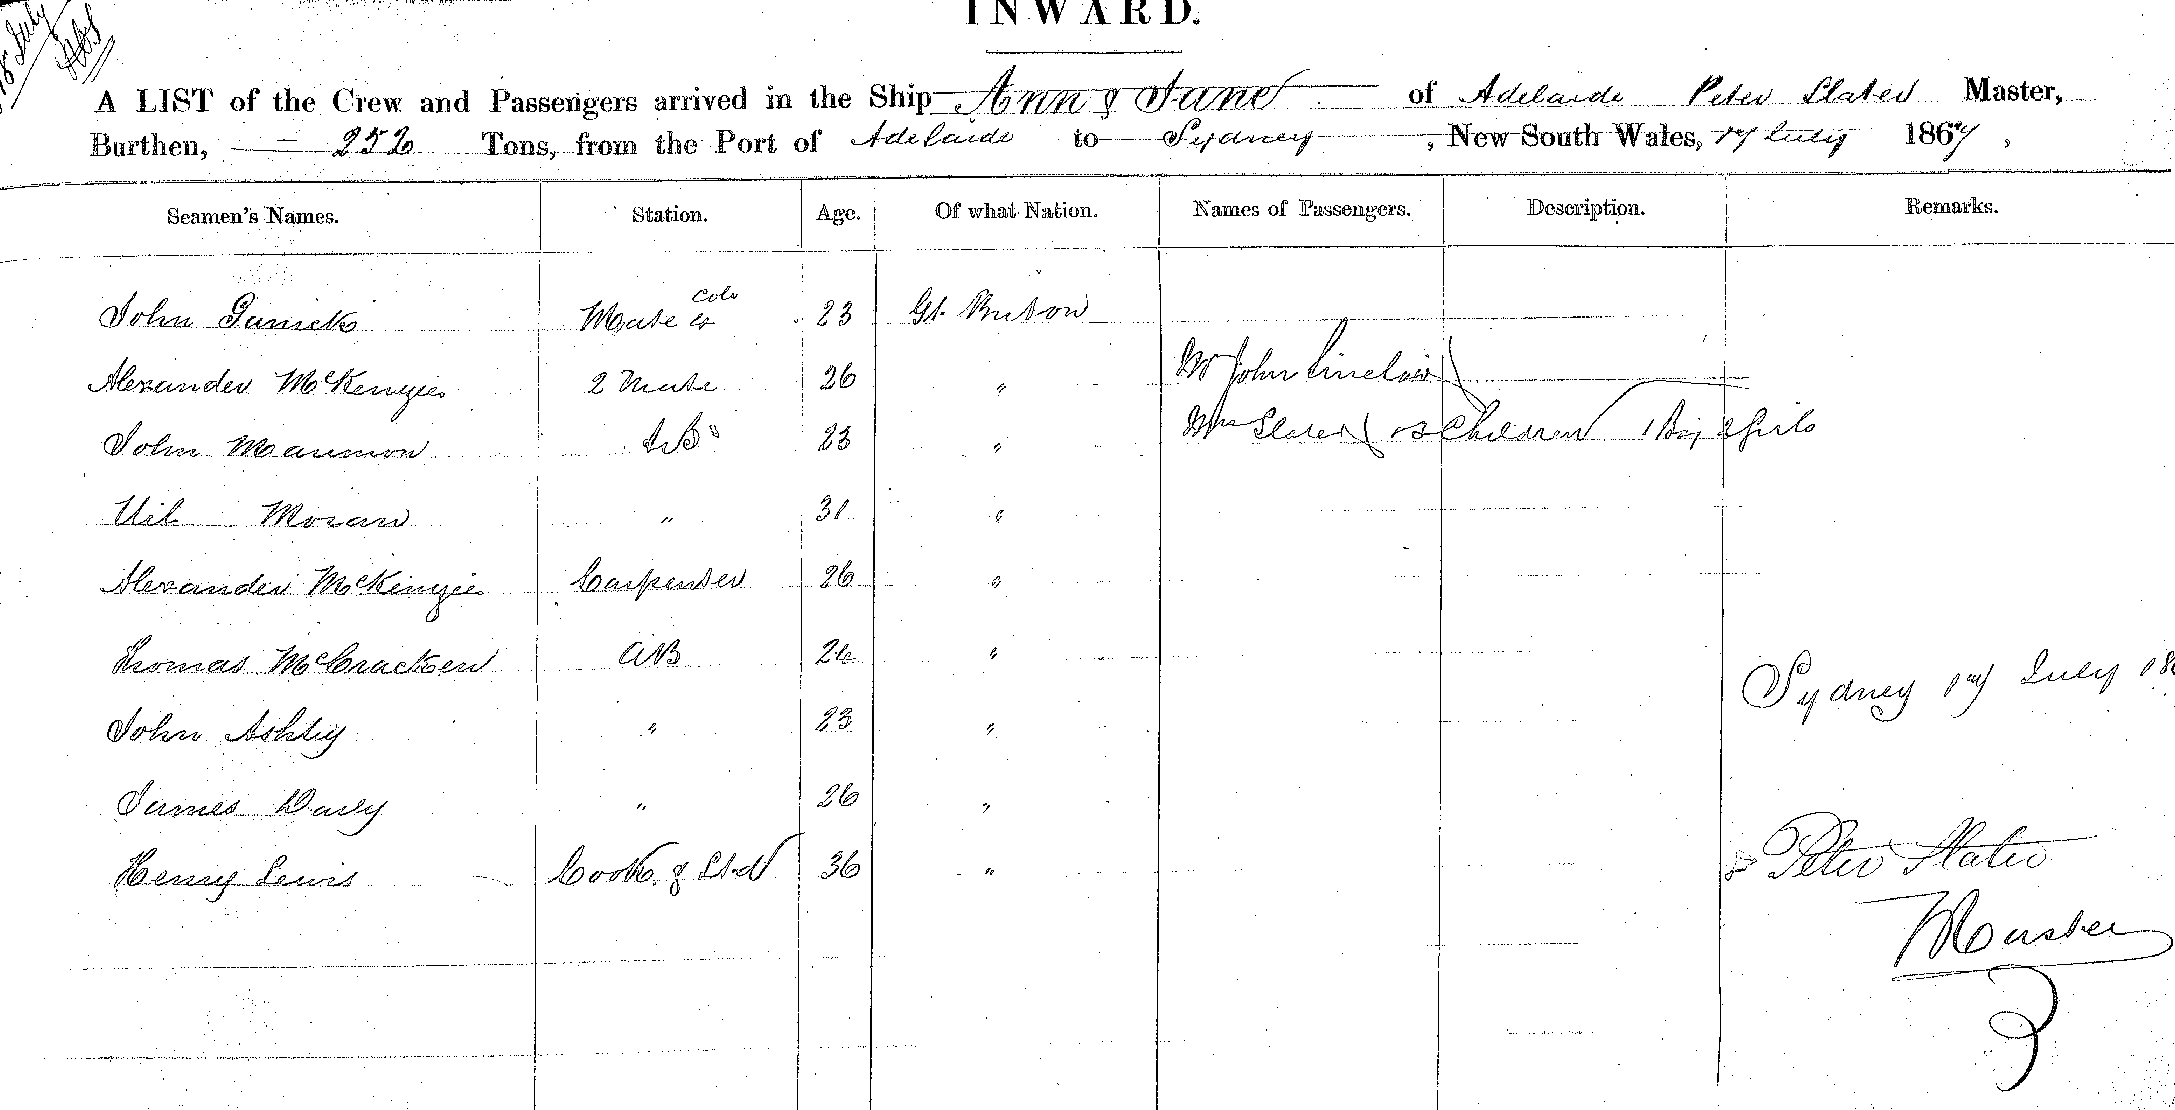 18 July
INWARD.
A LIST of the Crew and Passengers arrived in the Ship Ann & Jane of Adelaide Peter Slater Master,
Burthen, 252 Tons, from the Port of Adelaide to Sydney, New South Wales, 17 July 1867,
Seamen's Names. Station. Age. Of what Nation. Names of Passengers. Description. Remarks.
John Mate 23 Gt. Britton
Alexander McKenzie 2 Mate 26 " Mr John Sinclair
John 23 " Mrs Slater & 3 Children 1 Boy 2 Girls
Moran " 31 "
Alexander McKenzie Carpenter 26 "
Thomas McCracken AB 26 "
John Ashby " 23 "
James Daily " 26 "
Henry Lewis Cook & Std 36 "
Sydney 17 July 18
Peter Slater
Master